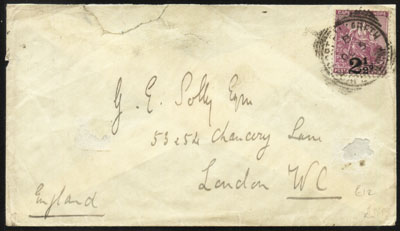 2½d
G. E. Solly Esqre
53 & 54 Chancery Lane
London WC
England